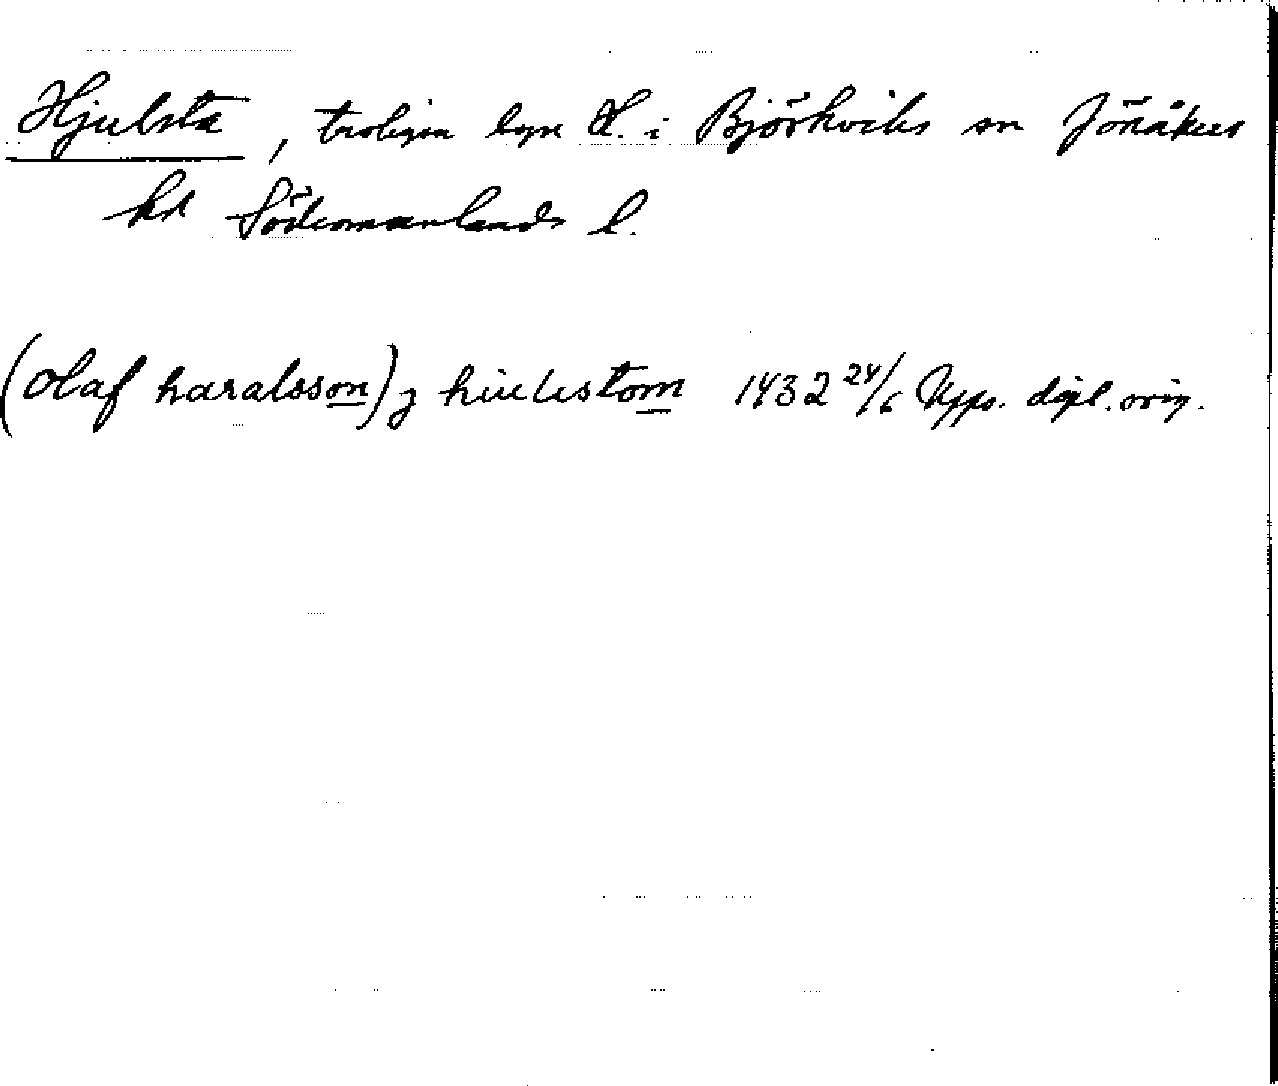 Hjulsta, troligen byn H. i Björkviks sn Jönåkers
hd Södermanlands l.
(Olaf haralsson) j hiulistom 1432 24/6 Upps. dipl. orig.